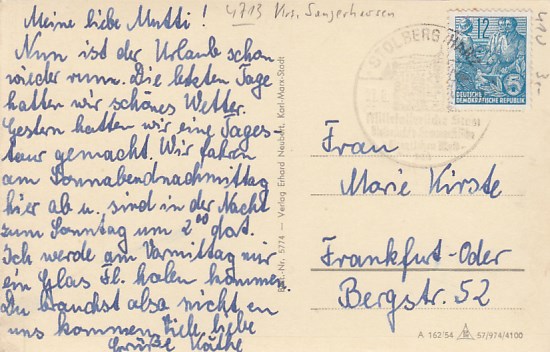 Meine liebe Mutti!
Nun ist der Urlaub schon
wieder rum. Die letzten Tage
hatten wir schönes Wetter.
Gestern hatten wir eine Tages-
tour gemacht. Wir fahren
am Sonnabendnachmittag
hier ab u. sind in der Nacht
zum Sonntag um 2⁰⁰ dort.
Ich werde am Vormittag mir
ein Glas Fl. holen kommen.
Du brauchst also nicht en
uns kommen. Viele liebe
Grüße Käthe
4713 Krs. Sangerhausen
Best.-Nr. 5774 — Verlag Erhard Neubert, Karl-Marx-Stadt
STOLBERG (HARZ)
12
DEUTSCHE
DEMOKRATISCHE REPUBLIK
Frau
Marie Kirste
Frankfurt-Oder
Bergstr. 52
A 162/54 57/974/4100